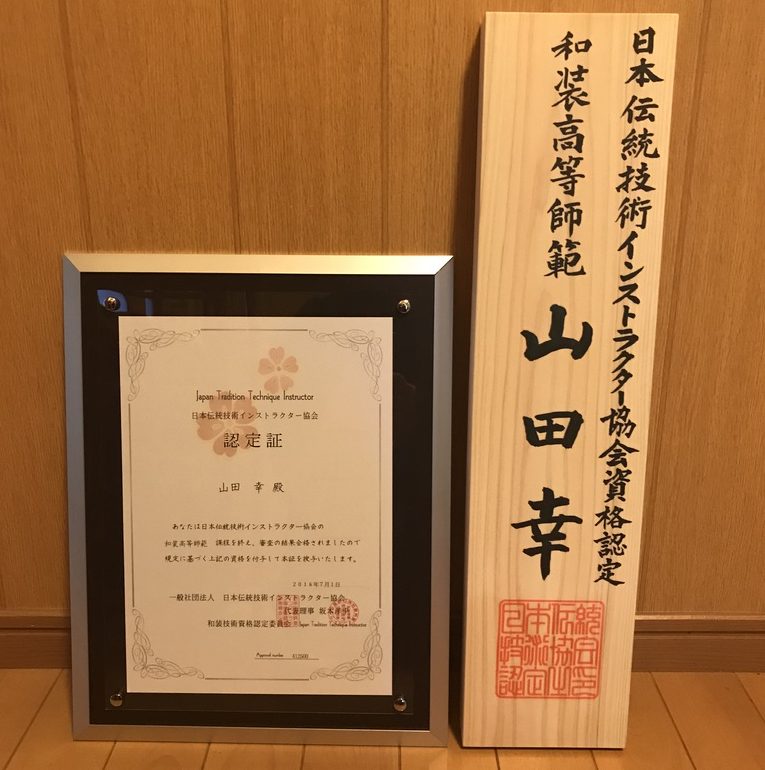 Japan Tradition Technique Instructor
日本伝統技術インストラクター協会
認定証
山田 幸 殿
あなたは日本伝統技術インストラクター協会の
和装高等師範 課程を終え、審査の結果合格されましたので
規定に基づく上記の資格を付与して本証を授与いたします。
2016年7月1日
一般社団法人 日本伝統技術インストラクター協会
代表理事
和装技術資格認定委員会 Japan Tradition Technique Instructor
Approval number 412600
日本伝統技術インストラクター協会資格認定
和装高等師範 山田幸